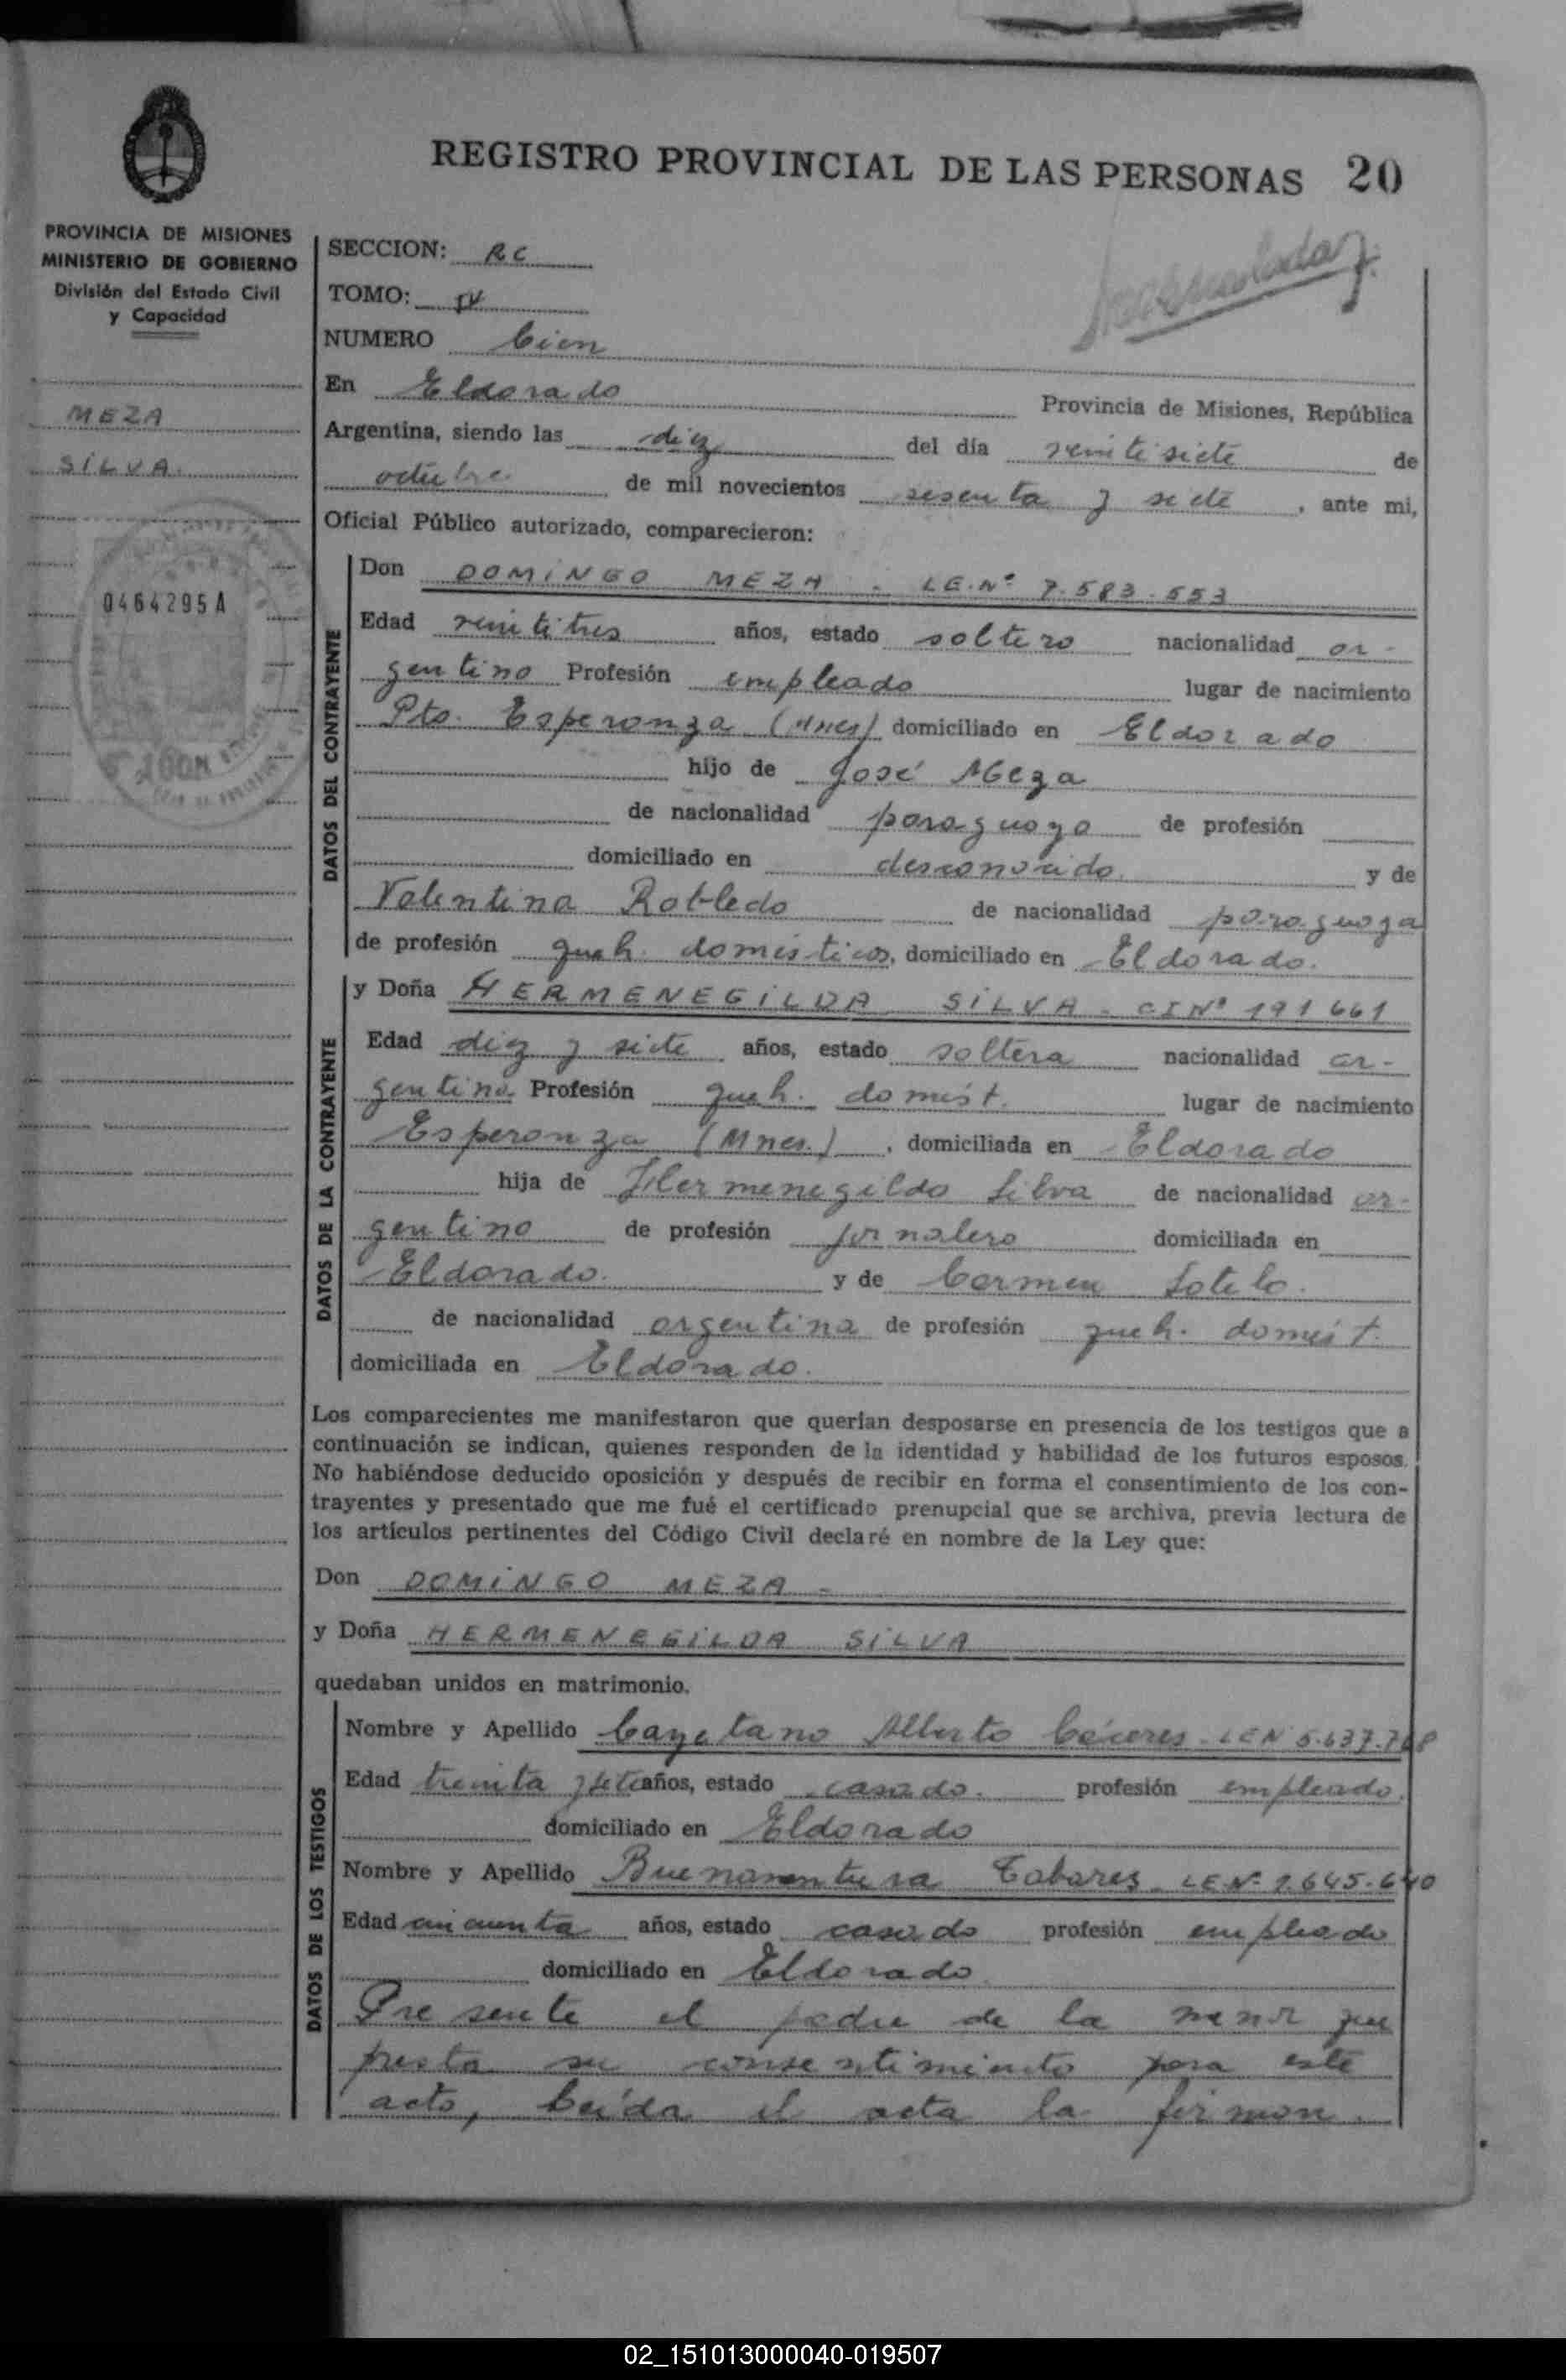 REGISTRO PROVINCIAL DE LAS PERSONAS 20
PROVINCIA DE MISIONES
MINISTERIO DE GOBIERNO
División del Estado Civil
y Capacidad
MEZA
SILVA
0464295A
SECCION: RC
TOMO: IV
NUMERO Cien
En Eldorado Provincia de Misiones, República
Argentina, siendo las diez del día veintisiete de
octubre de mil novecientos sesenta y siete, ante mi,
Oficial Público autorizado, comparecieron:
DATOS DEL CONTRAYENTE
Don DOMINGO MEZA - LE.Nº 7.583.553
Edad veintitres años, estado soltero nacionalidad ar-
gentino Profesión empleado lugar de nacimiento
Pto. Esperanza (Mnes) domiciliado en Eldorado
hijo de José Meza
de nacionalidad paraguaya de profesión
domiciliado en desconocido y de
Valentina Robledo de nacionalidad paraguaya
de profesión queh. domésticos, domiciliado en Eldorado.
DATOS DE LA CONTRAYENTE
y Doña HERMENEGILDA SILVA - CI Nº 191661
Edad diez y siete años, estado soltera nacionalidad ar-
gentina Profesión queh. domést. lugar de nacimiento
Esperanza (Mnes.), domiciliada en Eldorado
hija de Hermenegildo Silva de nacionalidad ar-
gentino de profesión jornalero domiciliada en
Eldorado. y de Carmen Sotelo.
de nacionalidad argentina de profesión queh. domést.
domiciliada en Eldorado.
Los comparecientes me manifestaron que querían desposarse en presencia de los testigos que a
continuación se indican, quienes responden de la identidad y habilidad de los futuros esposos.
No habiéndose deducido oposición y después de recibir en forma el consentimiento de los con-
trayentes y presentado que me fué el certificado prenupcial que se archiva, previa lectura de
los artículos pertinentes del Código Civil declaré en nombre de la Ley que:
Don DOMINGO MEZA -
y Doña HERMENEGILDA SILVA
quedaban unidos en matrimonio.
DATOS DE LOS TESTIGOS
Nombre y Apellido Cayetano Alberto Cáceres - LEN 5.637.768
Edad treinta y siete años, estado casado. profesión empleado.
domiciliado en Eldorado
Nombre y Apellido Buenaventura Tabares LE.Nº 2.645.640
Edad cincuenta años, estado casado profesión empleado
domiciliado en Eldorado
Presente el padre de la menor que
presta su consentimiento para este
acto, leída el acta la firman.
02_151013000040-019507